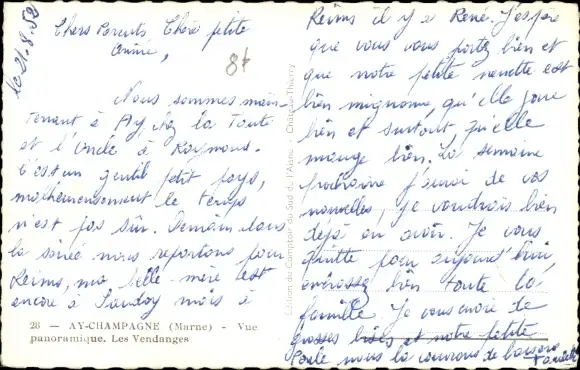 le 21.8.52
Chers Parents, Chère petite
Annie,
Nous sommes main-
tenant à Ay, chez la Tante
et l'Oncle à Raymond.
C'est un gentil petit pays,
malheureusement le temps
n'est pas sûr. Demain dans
la soirée nous repartons pour
Reims, ma belle-mère est
encore à mais à
28 — AY-CHAMPAGNE (Marne) - Vue
panoramique. Les Vendanges
Edition du Comptoir du Sud de l'Aisne - Château-Thierry
Reims il y a René. J'espère
que vous vous portez bien et
que notre petite nénette est
bien mignonne, qu'elle joue
bien et surtout qu'elle
mange bien. La semaine
prochaine j'aurai de vos
nouvelles, je voudrais bien
déjà en avoir. Je vous
quitte pour aujourd'hui,
embrassez bien toute la
famille. Je vous envoie de
grosses bises et notre petite
Poule nous la couvrons de baisers